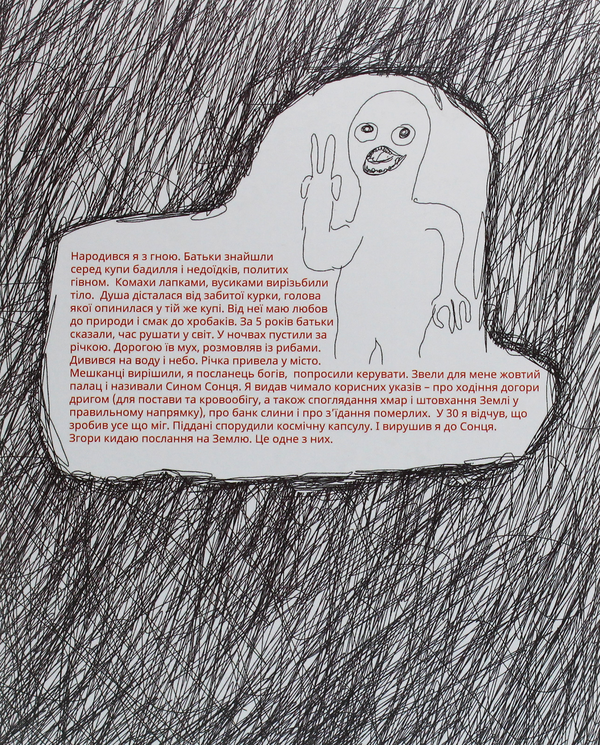 Народився я з гною. Батьки знайшли
серед купи бадилля і недоїдків, политих
гівном. Комахи лапками, вусиками вирізьбили
тіло. Душа дісталася від забитої курки, голова
якої опинилася у тій же купі. Від неї маю любов
до природи і смак до хробаків. За 5 років батьки
сказали, час рушати у світ. У ночвах пустили за
річкою. Дорогою їв мух, розмовляв із рибами.
Дивився на воду і небо. Річка привела у місто.
Мешканці вирішили, я посланець богів, попросили керувати. Звели для мене жовтий
палац і називали Сином Сонця. Я видав чимало корисних указів – про ходіння догори
дригом (для постави та кровообігу, а також споглядання хмар і штовхання Землі у
правильному напрямку), про банк слини і про з’їдання померлих. У 30 я відчув, що
зробив усе що міг. Піддані спорудили космічну капсулу. І вирушив я до Сонця.
Згори кидаю послання на Землю. Це одне з них.